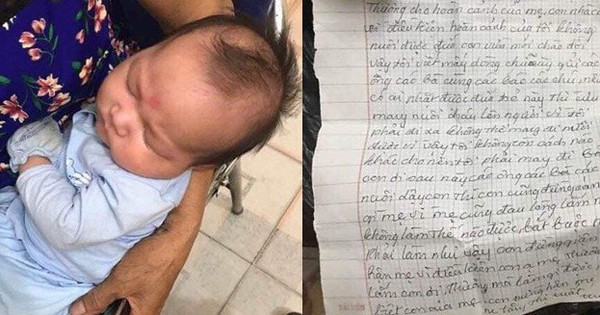 Thương cho hoàn cảnh của mẹ con nhau
Vì điều kiện hoàn cảnh của tôi không
nuôi được đứa con vừa mới chào đời
vậy tôi viết mấy dòng chữ này gửi các
ông các bà cùng các bác các chú nếu
có ai nhặt được đứa trẻ này thì cưu
mang nuôi cháu lên người vì tôi
phải đi xa không thể mang đi nuôi
được vì vậy tôi không còn cách nào
khác cho nên tôi phải
con đi sau này các ông các Bà các
nuôi dậy con thì con cũng đừng oán
mẹ vì mẹ cũng đau lòng lắm
không làm thế nào được bắt Buộc
phải làm như vậy con đừng giận
hận mẹ vì điều kiện con ạ mẹ thương
lắm con ơi, thương mà
của mẹ con đừng hận